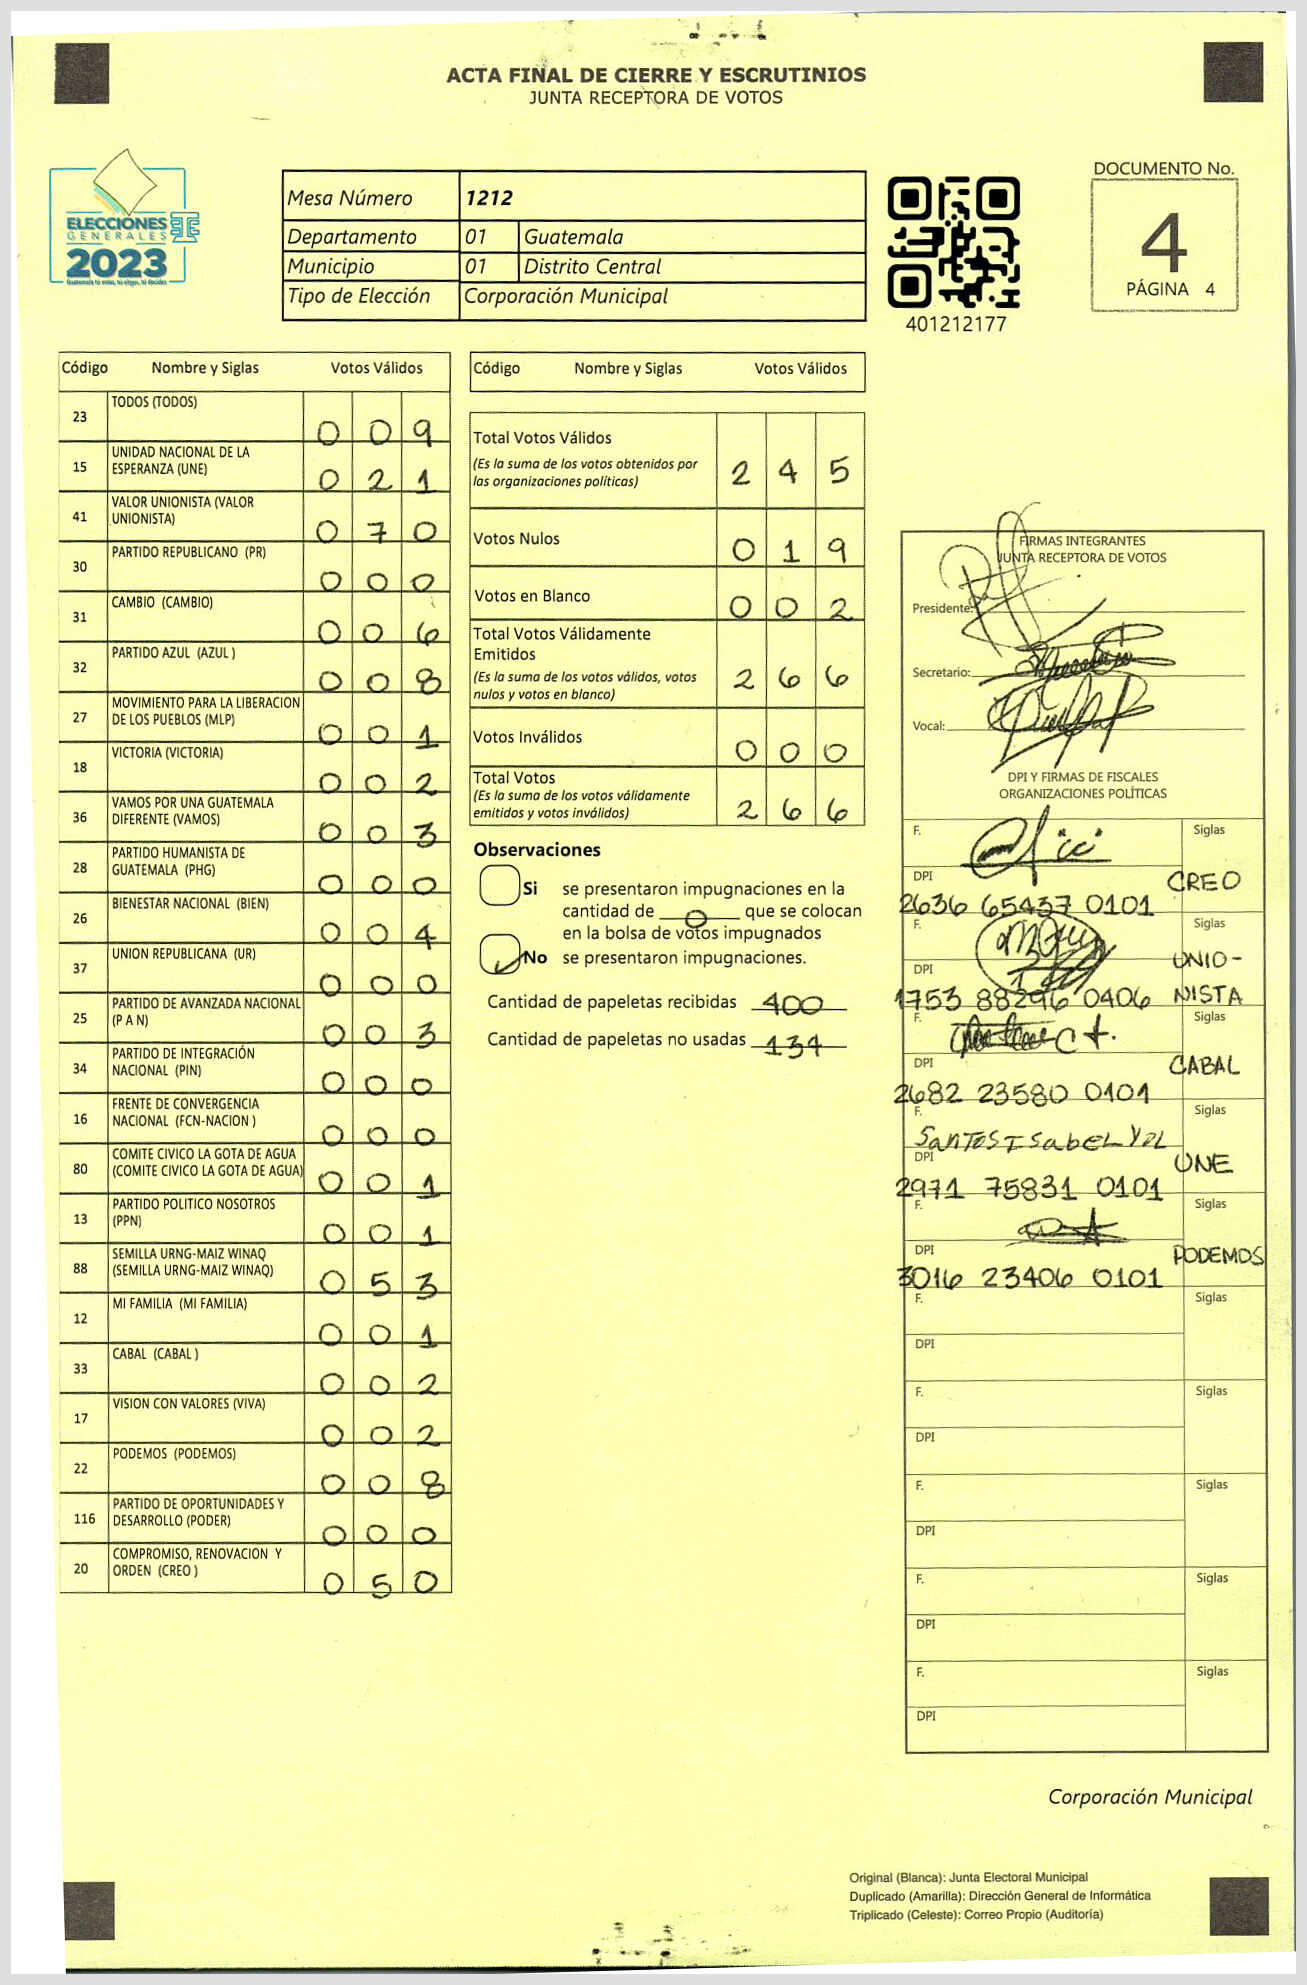 ACTA FINAL DE CIERRE Y ESCRUTINIOS
JUNTA RECEPTORA DE VOTOS
ELECCIONES
GENERALES
2023
Mesa Número 1212
Departamento 01 Guatemala
Municipio 01 Distrito Central
Tipo de Elección Corporación Municipal
401212177
DOCUMENTO No.
4
PÁGINA 4
Código Nombre y Siglas Votos Válidos
23 TODOS (TODOS) 0 0 9
15 UNIDAD NACIONAL DE LA
ESPERANZA (UNE) 0 2 1
41 VALOR UNIONISTA (VALOR
UNIONISTA) 0 7 0
30 PARTIDO REPUBLICANO (PR) 0 0 0
31 CAMBIO (CAMBIO) 0 0 6
32 PARTIDO AZUL (AZUL ) 0 0 8
27 MOVIMIENTO PARA LA LIBERACION
DE LOS PUEBLOS (MLP) 0 0 1
18 VICTORIA (VICTORIA) 0 0 2
36 VAMOS POR UNA GUATEMALA
DIFERENTE (VAMOS) 0 0 3
28 PARTIDO HUMANISTA DE
GUATEMALA (PHG) 0 0 0
26 BIENESTAR NACIONAL (BIEN) 0 0 4
37 UNION REPUBLICANA (UR) 0 0 0
25 PARTIDO DE AVANZADA NACIONAL
(P A N) 0 0 3
34 PARTIDO DE INTEGRACIÓN
NACIONAL (PIN) 0 0 0
16 FRENTE DE CONVERGENCIA
NACIONAL (FCN-NACION ) 0 0 0
80 COMITE CIVICO LA GOTA DE AGUA
(COMITE CIVICO LA GOTA DE AGUA) 0 0 1
13 PARTIDO POLITICO NOSOTROS
(PPN) 0 0 1
88 SEMILLA URNG-MAIZ WINAQ
(SEMILLA URNG-MAIZ WINAQ) 0 5 3
12 MI FAMILIA (MI FAMILIA) 0 0 1
33 CABAL (CABAL ) 0 0 2
17 VISION CON VALORES (VIVA) 0 0 2
22 PODEMOS (PODEMOS) 0 0 8
116 PARTIDO DE OPORTUNIDADES Y
DESARROLLO (PODER) 0 0 0
20 COMPROMISO, RENOVACION Y
ORDEN (CREO ) 0 5 0
Código Nombre y Siglas Votos Válidos
Total Votos Válidos
(Es la suma de los votos obtenidos por
las organizaciones políticas) 2 4 5
Votos Nulos 0 1 9
Votos en Blanco 0 0 2
Total Votos Válidamente
Emitidos
(Es la suma de los votos válidos, votos
nulos y votos en blanco) 2 6 6
Votos Inválidos 0 0 0
Total Votos
(Es la suma de los votos válidamente
emitidos y votos inválidos) 2 6 6
Observaciones
Si se presentaron impugnaciones en la
cantidad de 0 que se colocan
en la bolsa de votos impugnados
No se presentaron impugnaciones.
Cantidad de papeletas recibidas 400
Cantidad de papeletas no usadas 134
FIRMAS INTEGRANTES
JUNTA RECEPTORA DE VOTOS
Presidente:
Secretario:
Vocal:
DPI Y FIRMAS DE FISCALES
ORGANIZACIONES POLÍTICAS
F. Siglas
DPI CREO
2636 65437 0101
F. Siglas
DPI UNIO-
1753 88296 0406 NISTA
F. Siglas
DPI CABAL
2682 23580 0101
F. Siglas
Santos Isabel
DPI UNE
2971 75831 0101
F. Siglas
DPI PODEMOS
3016 23406 0101
F. Siglas
DPI
F. Siglas
DPI
F. Siglas
DPI
F. Siglas
DPI
F. Siglas
DPI
Corporación Municipal
Original (Blanca): Junta Electoral Municipal
Duplicado (Amarilla): Dirección General de Informática
Triplicado (Celeste): Correo Propio (Auditoría)